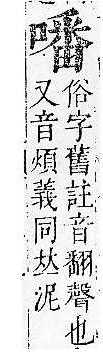 噃
俗字舊註音翻聲也
又音煩義同夶泥